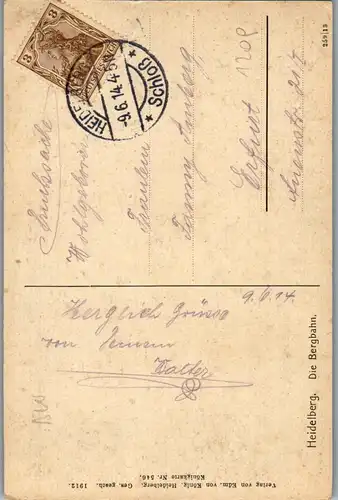 Drucksache
Wohlgeboren
Fräulein
Fanny
Erfurt
9.6.14.
Herzlich Grüsse
von Deinem
Walter
3 3
HEIDELBERG
-9.6.14.4-5N
* Schloß *
1208
259/13
Heidelberg. Die Bergbahn.
Verlag von Edm. von König, Heidelberg. Ges. gesch. 1912.
Königkarte Nr. 546.